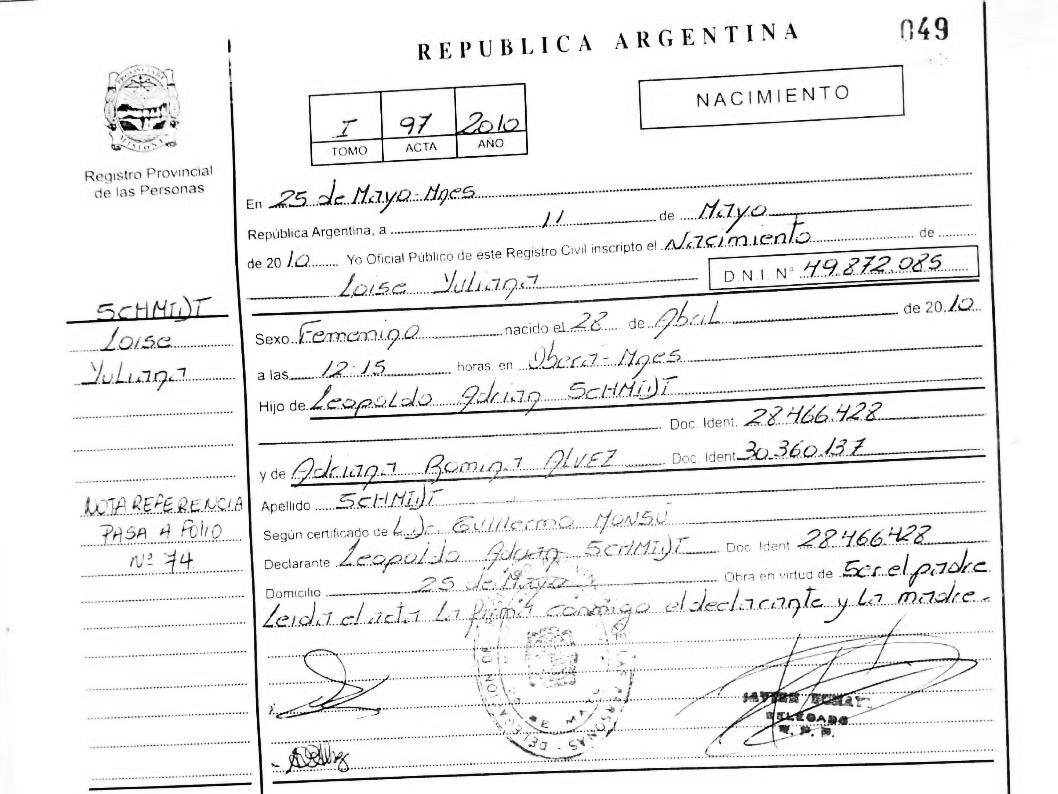 REPUBLICA ARGENTINA
049
NACIMIENTO
I 97 2010
TOMO ACTA AÑO
Registro Provincial
de las Personas
En 25 de Mayo-Mnes
República Argentina, a 11 de Mayo
de 2010 Yo Oficial Público de éste Registro Civil inscripto el Nacimiento de
Loise Yuliana DNI Nº 49.872.085
SCHMIDT
Loise
Yuliana
Sexo Femenino nacido el 28 de Abril de 2010
a las 12:15 horas, en Oberá-Mnes
Hijo de Leopoldo Adrian SCHMIDT
Doc. Ident. 28.466.428
y de Adriana Romina ALVEZ Doc. Ident. 30.360.137
Apellido SCHMIDT
NOTA REFERENCIA
PASA A FOLIO
Nº 74
Según certificado de Guillermo MONSU
Declarante Leopoldo Adrian SCHMIDT Doc. Ident 28466428
Domicilio 25 de Mayo Obra en virtud de Ser el padre
Leida el acta La firma conmigo el declarante y La madre.-
JAVIER
DELEGADO
DE LAS PERSONAS - DELEGACION
DE MAYO